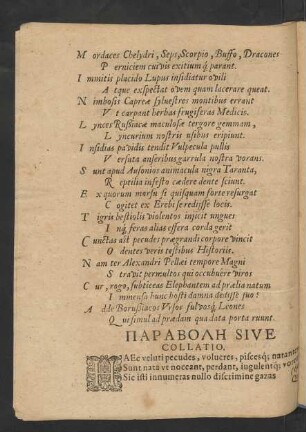 Mordaces Chelydri, Seps, Scorpio, Buffo, Dracones
Perniciem cuivis exitium q́ parant.
Immitis placido Lupus insidietur ovili
Atque exspectat ovem quam lacerare queat.
Nimbosis Capreæ sylvestres montibus errant
Vt carpant herbas frugiferas Medicis.
Lynces Russiacæ maculosæ tergore gemmam,
Lyncurium nostris usibus eripiunt.
Insidias pavidis tendit Vulpecula pullis
Versuta anseribus garrula nostra vorans.
Sunt apud Ausonios animacula nigra Taranta,
Reptilia infesto cædere dente sciunt.
Ex quorum morsu si quisquam forte resurgat
Cogitet ex Erebi se rediisse locis.
Tigris bestiolis violentos injicit ungues
Inq́ feras alias effera corda gerit
Cunctas ast pecudes prægrandi corpore vincit
Odentes veris testibus Historiis.
Nam ter Alexandri Pellæi tempore Magni
Stravit permultos qui occubuêre viros
Cur, rogo, subticeas Elephantem ad prælia natum
Immensa hunc hosti damna dedisse suo?
Adde Borussiacos Vrsos fulvosq́ Leones
Quæ simul ad prædam qua data porta ruunt.
ΠΑΡΑΒΟΛΗ SIVE
COLLATIO.
HAEc veluti pecudes, volucres, piscesq́; natantes
Sunt nata ut noceant, perdant, jugulentq́;
Sic isti innumeras nullo discrimine gazas